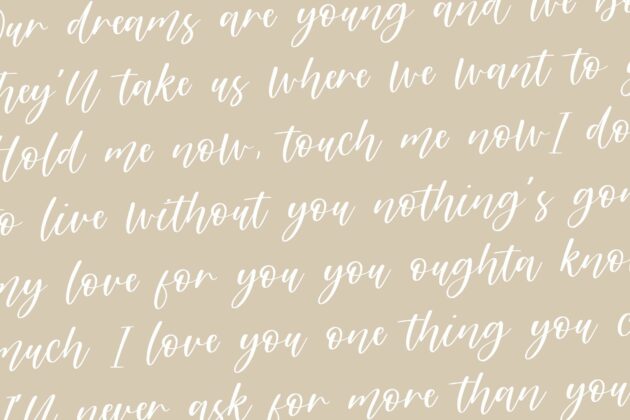 Our dreams are young and we
They'll take us where we want to
Hold me now, touch me now I do
to live without you nothing's
my love for you you oughta
much I love you one thing you
I'll never ask for more than you